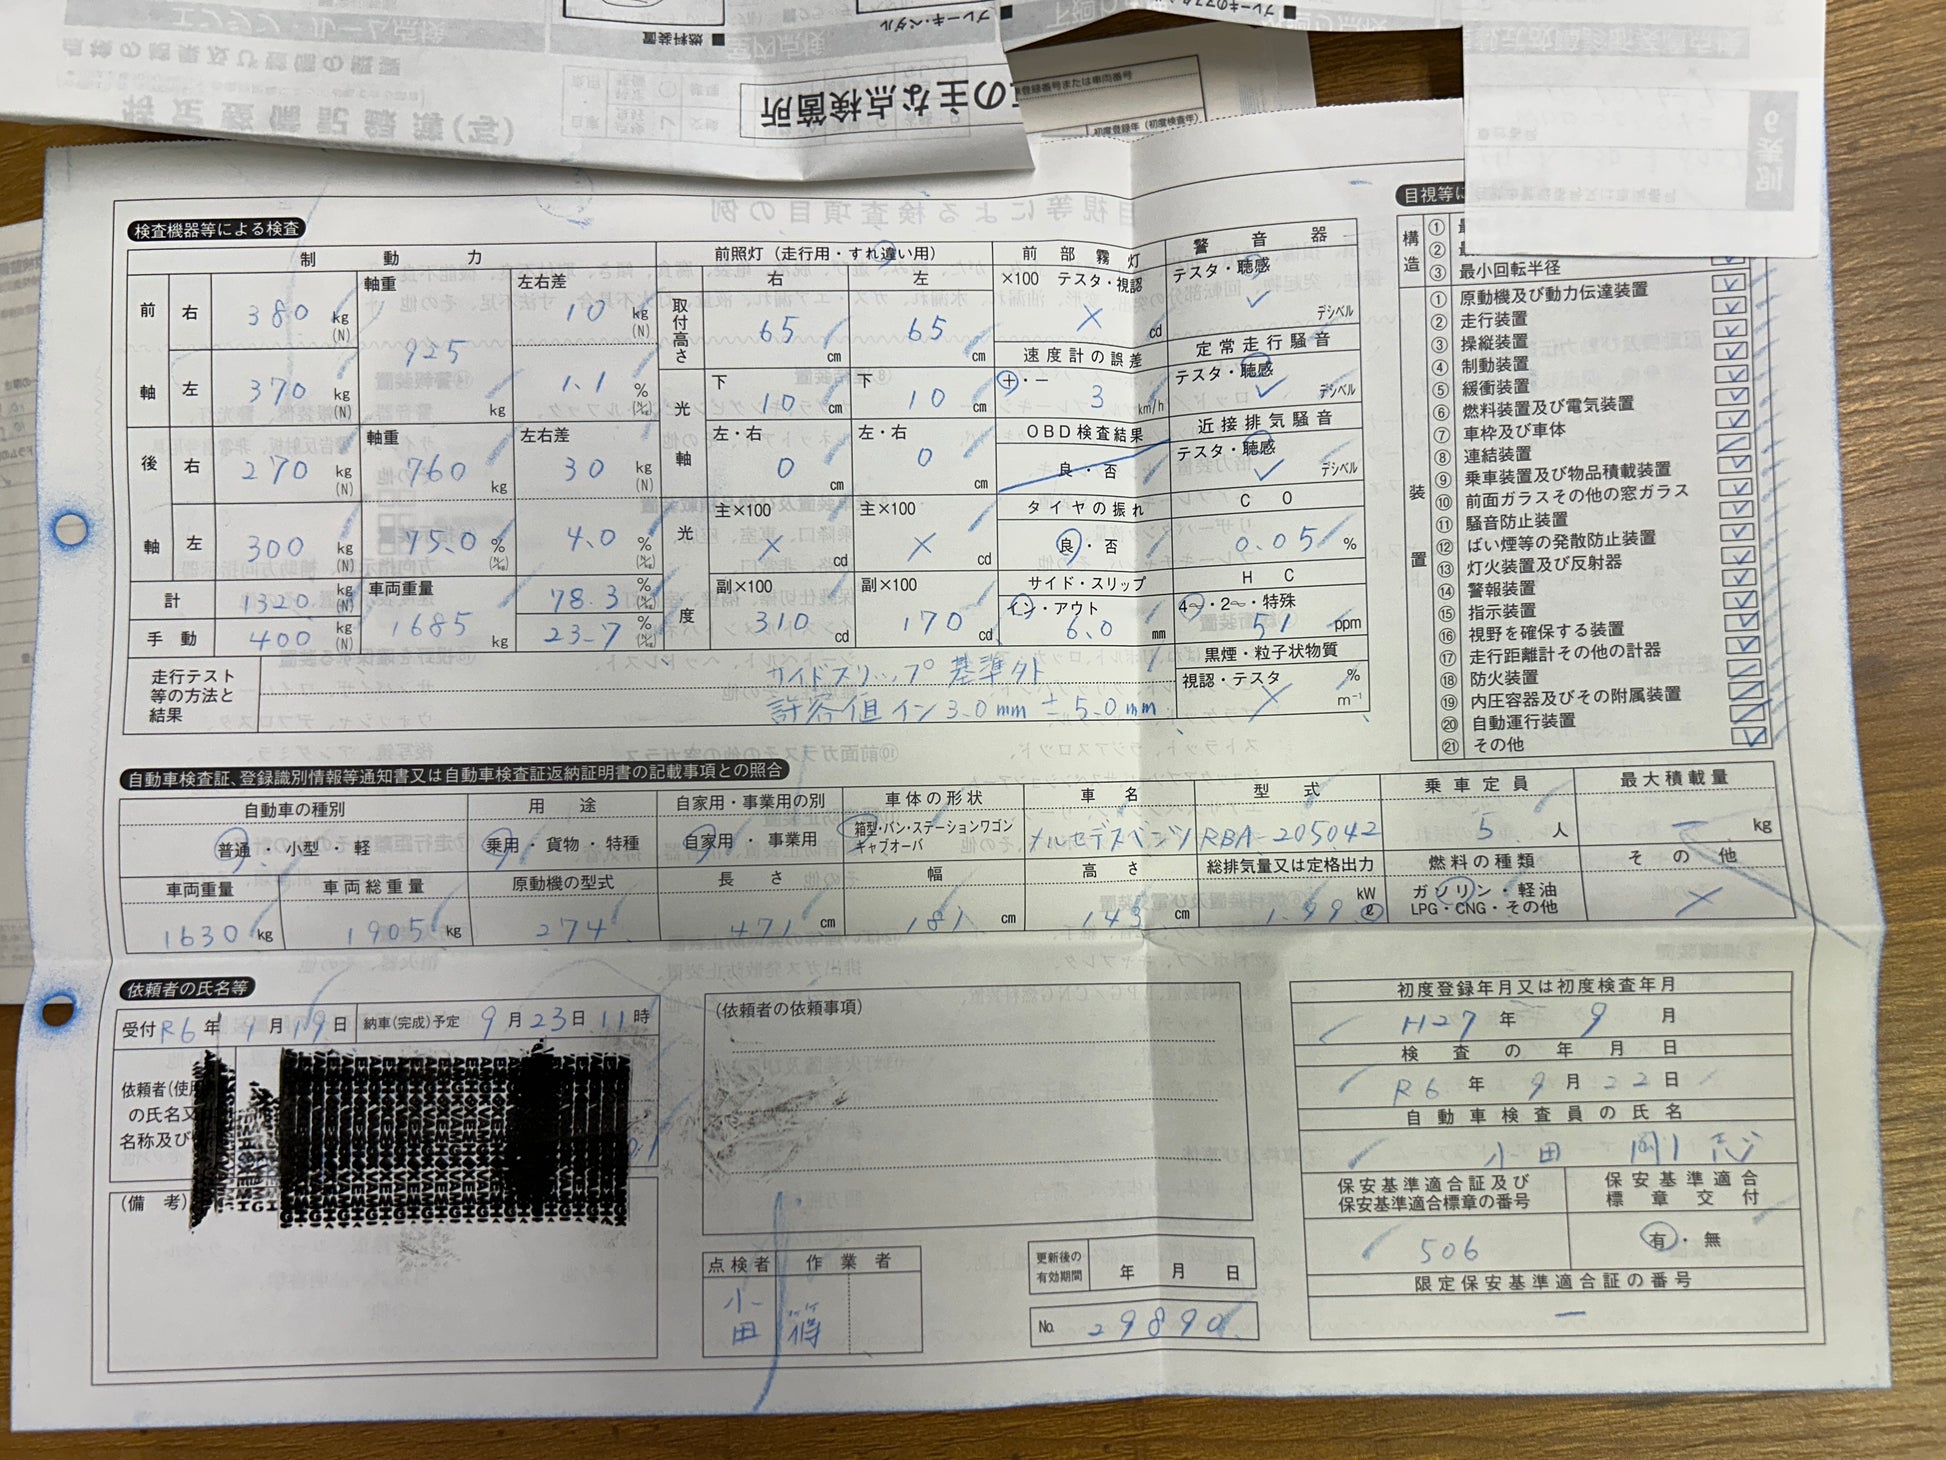 燃料装置
ブレーキ・ペダル
の主な点検箇所
特定整備記録簿(写)
点検の結果及び整備の概要
登録番号または車両番号
初度登録年(初度検査年)
検査機器等による検査
制動力
前軸
右 380 kg (N)
左 370 kg (N)
軸重 925 kg
左右差 10 kg (N)
1.1 %
後軸
右 270 kg (N)
左 300 kg (N)
軸重 760 kg
75.0 %
左右差 30 kg (N)
4.0 %
計 1320 kg (N)
手動 400 kg (N)
車両重量 1685 kg
78.3 %
23.7 %
前照灯(走行用・すれ違い用)
右 左
取付高さ 65 cm 65 cm
光軸
下 10 cm 下 10 cm
左・右 0 cm 左・右 0 cm
光度
主×100 × cd 主×100 × cd
副×100 310 cd 副×100 170 cd
前部霧灯
×100 テスタ・視認
× cd
速度計の誤差
+・− 3 km/h
OBD検査結果
良・否
タイヤの振れ
良・否
サイド・スリップ
イン・アウト
6.0 mm
警音器
テスタ・聴感
✓ デシベル
定常走行騒音
テスタ・聴感
✓ デシベル
近接排気騒音
テスタ・聴感
✓ デシベル
CO
0.05 %
HC
4〜・2〜・特殊
51 ppm
黒煙・粒子状物質
視認・テスタ
× % m⁻¹
走行テスト等の方法と結果
サイドスリップ 基準外
許容値 イン 3.0mm ± 5.0mm
目視等に
構造
①
②
③ 最小回転半径
装置
① 原動機及び動力伝達装置
② 走行装置
③ 操縦装置
④ 制動装置
⑤ 緩衝装置
⑥ 燃料装置及び電気装置
⑦ 車枠及び車体
⑧ 連結装置
⑨ 乗車装置及び物品積載装置
⑩ 前面ガラスその他の窓ガラス
⑪ 騒音防止装置
⑫ ばい煙等の発散防止装置
⑬ 灯火装置及び反射器
⑭ 警報装置
⑮ 指示装置
⑯ 視野を確保する装置
⑰ 走行距離計その他の計器
⑱ 防火装置
⑲ 内圧容器及びその附属装置
⑳ 自動運行装置
㉑ その他
自動車検査証、登録識別情報等通知書又は自動車検査証返納証明書の記載事項との照合
自動車の種別 用途 自家用・事業用の別 車体の形状 車名 型式 乗車定員 最大積載量
普通・小型・軽 乗用・貨物・特種 自家用・事業用 箱型・バン・ステーションワゴン キャブオーバ メルセデスベンツ RBA-205042 5 人 ー kg
車両重量 車両総重量 原動機の型式 長さ 幅 高さ 総排気量又は定格出力 燃料の種類 その他
1630 kg 1905 kg 274 471 cm 181 cm 143 cm 1.99 kW ℓ ガソリン・軽油 LPG・CNG・その他 ×
依頼者の氏名等
受付 R6年 9月19日 納車(完成)予定 9月23日11時
依頼者(使用
の氏名又
名称及び
(備考)
(依頼者の依頼事項)
点検者 作業者
小田 篠
更新後の有効期間 年 月 日
No. 29890
初度登録年月又は初度検査年月
H27年 9月
検査の年月日
R6年 9月22日
自動車検査員の氏名
小田 剛志
保安基準適合証及び保安基準適合標章の番号
506
保安基準適合標章交付
有・無
限定保安基準適合証の番号
ー